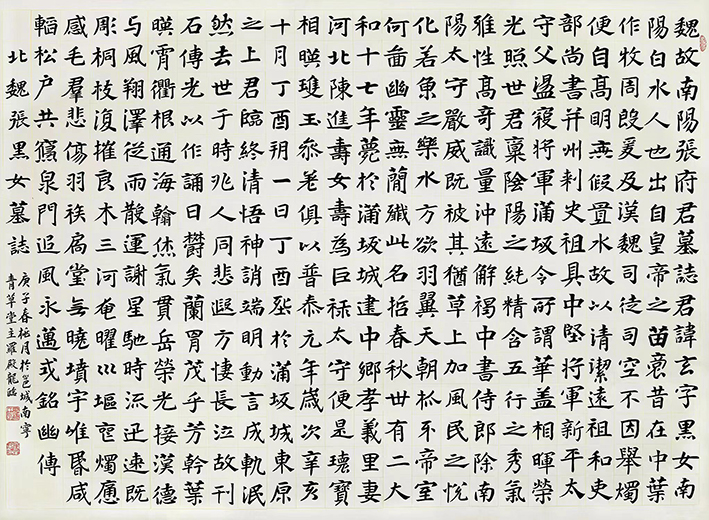 魏故南陽張府君墓誌君諱玄字黑女南
陽白水人也出自皇帝之苗裔昔在中葉
作牧周殷爰及漢魏司徒司空不因舉燭
便自高明無假置水故以清潔遠祖和吏
部尚書并州刾史祖具中堅將軍新平太
守父盪寇將軍蒲坂令所謂華蓋相暉榮
光照世君稟陰陽之純精含五行之秀氣
雅性高奇識量沖遠解褐中書侍郎除南
陽太守嚴威既被其猶草上加風民之悅
化若魚之樂水方欲羽翼天朝抓牙帝室
何啚幽靈無簡殲此名哲春秋卅有二大
和十七年薨於蒲坂城建中鄉孝義里妻
河北陳進壽女壽為巨祿太守便是瓌寶
相暎瓊玉參差俱以普泰元年歲次辛亥
十月丁酉朔一日丁酉塟於蒲坂城東原
之上君臨終清悟神誚端明動言成軌泯
然去世于時兆人同悲遐方悽長泣故刊
石傳光以作誦曰鬱矣蘭胄茂乎芳幹葉
暎霄衢根通海翰烋氣貫岳榮光接漢德
与風翔澤從雨散運謝星馳時流迅速既
彫桐枝復摧良木三河奄曜川堛燭痛
感毛羣悲傷羽族扃堂無曉墳宇唯昏咸
韜松戶共寢泉門追風永邁式銘幽傳
北魏張黑女墓誌
庚子春桃月於邕城南寧
青草堂主羅殿龍臨